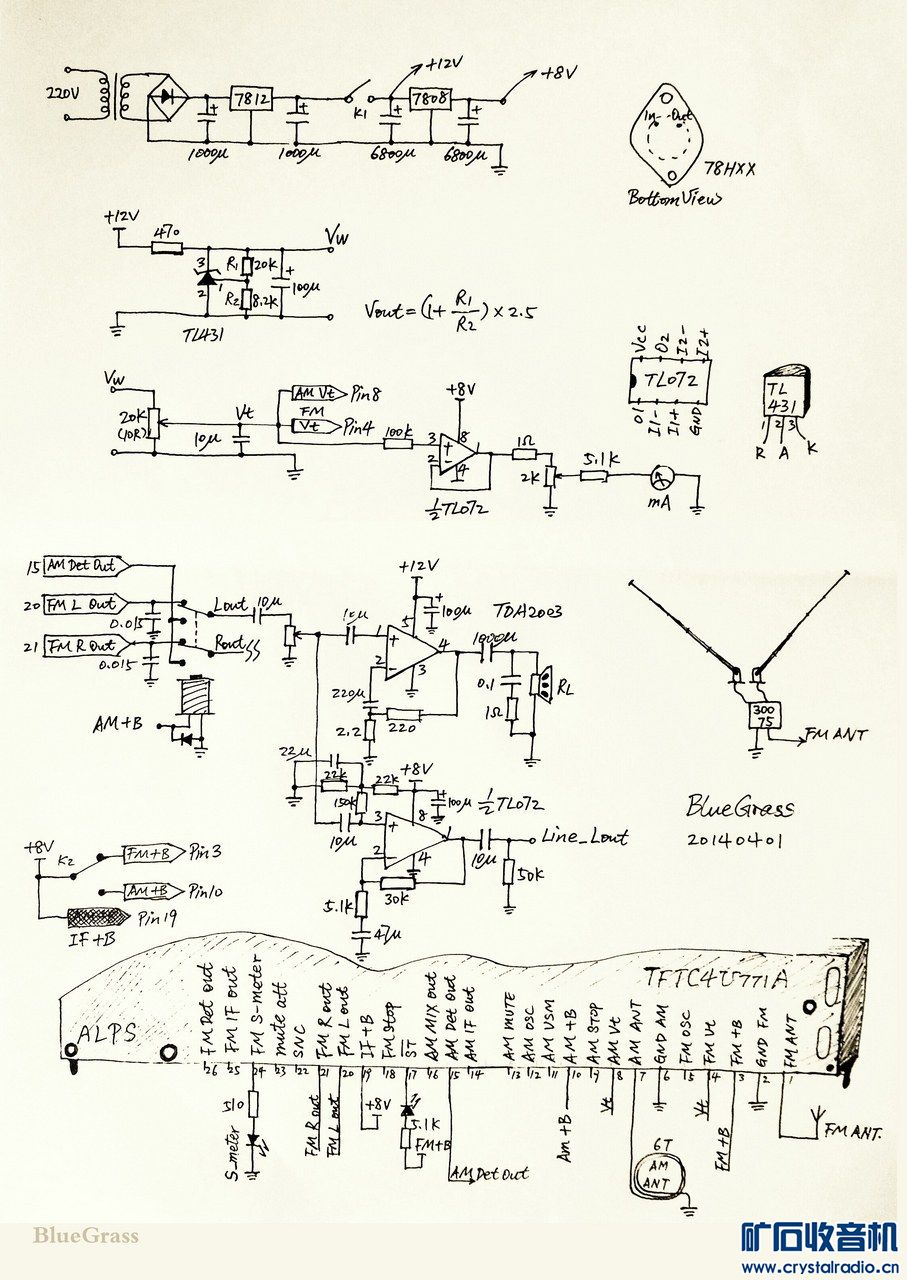 220V
7812
K1
+12V
7808
+8V
1000μ
1000μ
6800μ
6800μ
In
Out
78HXX
Bottom View
+12V
470
Vw
3
R1
20K
1
2
R2
8.2K
100μ
TL431
Vout=(1+R1/R2)×2.5
Vcc
O2
I2-
I2+
TL072
O1
I1-
I1+
GND
TL
431
1 2 3
R A K
Vw
20K
(10R)
Vt
10μ
AM Vt
Pin8
FM
Vt
Pin4
100k
+8V
3
8
1
2
4
½TL072
1Ω
2K
5.1K
mA
15
AM Det Out
20
FM L Out
0.015
21
FM R Out
0.015
Lout
10μ
Rout
AM+B
+12V
100μ
TDA2003
1
5
4
2
3
1000μ
220μ
220
2.2
0.1
1Ω
RL
300
75
FM ANT
22μ
22k
22k
+8V
150k
100μ
½TL072
10μ
3
8
1
2
4
10μ
Line_Lout
50K
30K
5.1K
47μ
BlueGrass
20140401
+8V
K2
FM+B
Pin3
AM+B
Pin10
Pin19
IF+B
ALPS
TFTC4U771A
FM Det out
FM IF out
FM S-meter
mute att
S/VC
FM R out
FM L out
IF+B
FM Stop
ST
AM MIX out
AM Det out
AM IF out
AM MUTE
AM OSC
AM VSM
AM+B
AM STOP
AM Vt
AM ANT
GND AM
FM OSC
FM Vt
FM+B
GND FM
FM ANT
26 25 24 23 22 21 20 19 18 17 16 15 14 13 12 11 10 9 8 7 6 5 4 3 2 1
510
S-meter
FM R out
FM L out
+8V
5.1K
FM+B
AM Det Out
Am+B
Vt
6T
AM
ANT
Vt
FM+B
FM ANT.
BlueGrass
矿石收音机
www.crystalradio.cn